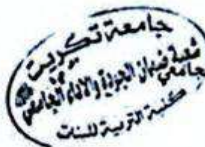 جامعة تكريت
شعبة ضمان الجودة والاداء الجامعي
كلية التربية للبنات